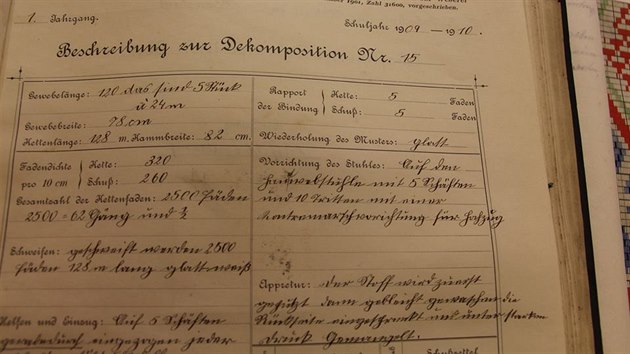 1901, Zahl 31600, vorgeschrieben.
1. Jahrgang.
Schuljahr 1909 – 1910.
Beschreibung zur Dekomposition Nr. 15
Gewebelänge: 120 das sind 5 Stück
à 24 m
Gewebebreite: 78 cm
Kettenlänge: 128 m. Kammbreite: 82 cm.
Fadendichte Kette: 320
pro 10 cm Schuß: 260
Gesamtzahl der Kettenfaden: 2500 Fäden
2500 = 62 Gäng und ½
Schweifen: geschweift werden 2500
Fäden 128 m lang glatt weiß
und Einzug: Auf 5 Schäften
eingezogen jeder
Rapport Kette: 5 Faden
der Bindung Schuß: 5 Faden
Wiederholung des Musters: glatt
Vorrichtung des Stuhles: Auf den
Handwebstühle mit 5 Schäften
und 10 Tritten mit einer
Kontremarschvorrichtung für Hochzug
Appretur: der Stoff wird zuerst
geputzt dann gebleicht gewaschen die
Rückseite eingesprengt und unter starken
Druck Gemangelt.
Schußzettel